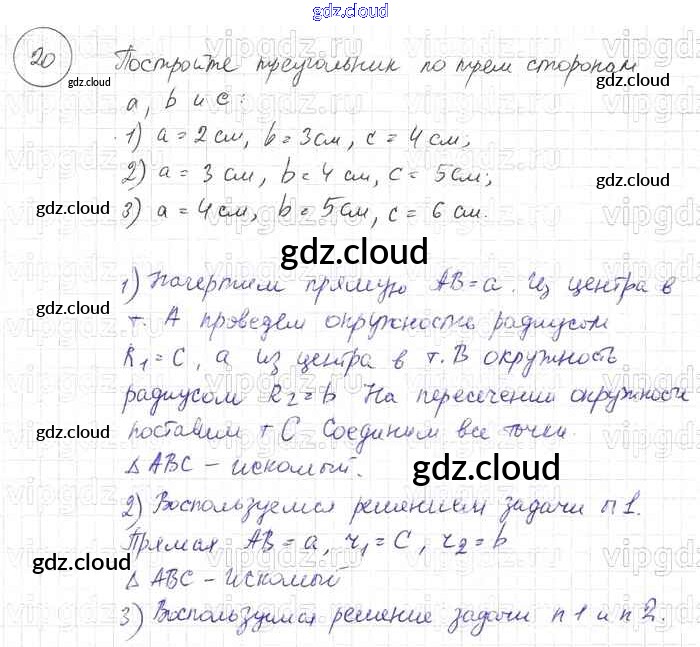 gdz.cloud
20
Постройте треугольник по трем сторонам
a, b и c:
1) a = 2 см, b = 3 см, c = 4 см;
2) a = 3 см, b = 4 см, c = 5 см;
3) a = 4 см, b = 5 см, c = 6 см.
gdz.cloud
gdz.cloud
gdz.cloud
gdz.cloud
gdz.cloud
gdz.cloud
1) Начертим прямую AB = a. Из центра в
т. A проведем окружность радиусом
R1 = C, а из центра в т. B окружность
радиусом R2 = b На пересечении окружности
поставим т C Соединим все точки.
Δ ABC – искомый.
gdz.cloud
gdz.cloud
gdz.cloud
gdz.cloud
2) Воспользуемся решением задачи п 1.
Прямая AB = a, r1 = C, r2 = b
Δ ABC – искомый
3) Воспользуемся решение задачи п 1 и п 2.
gdz.cloud
gdz.cloud